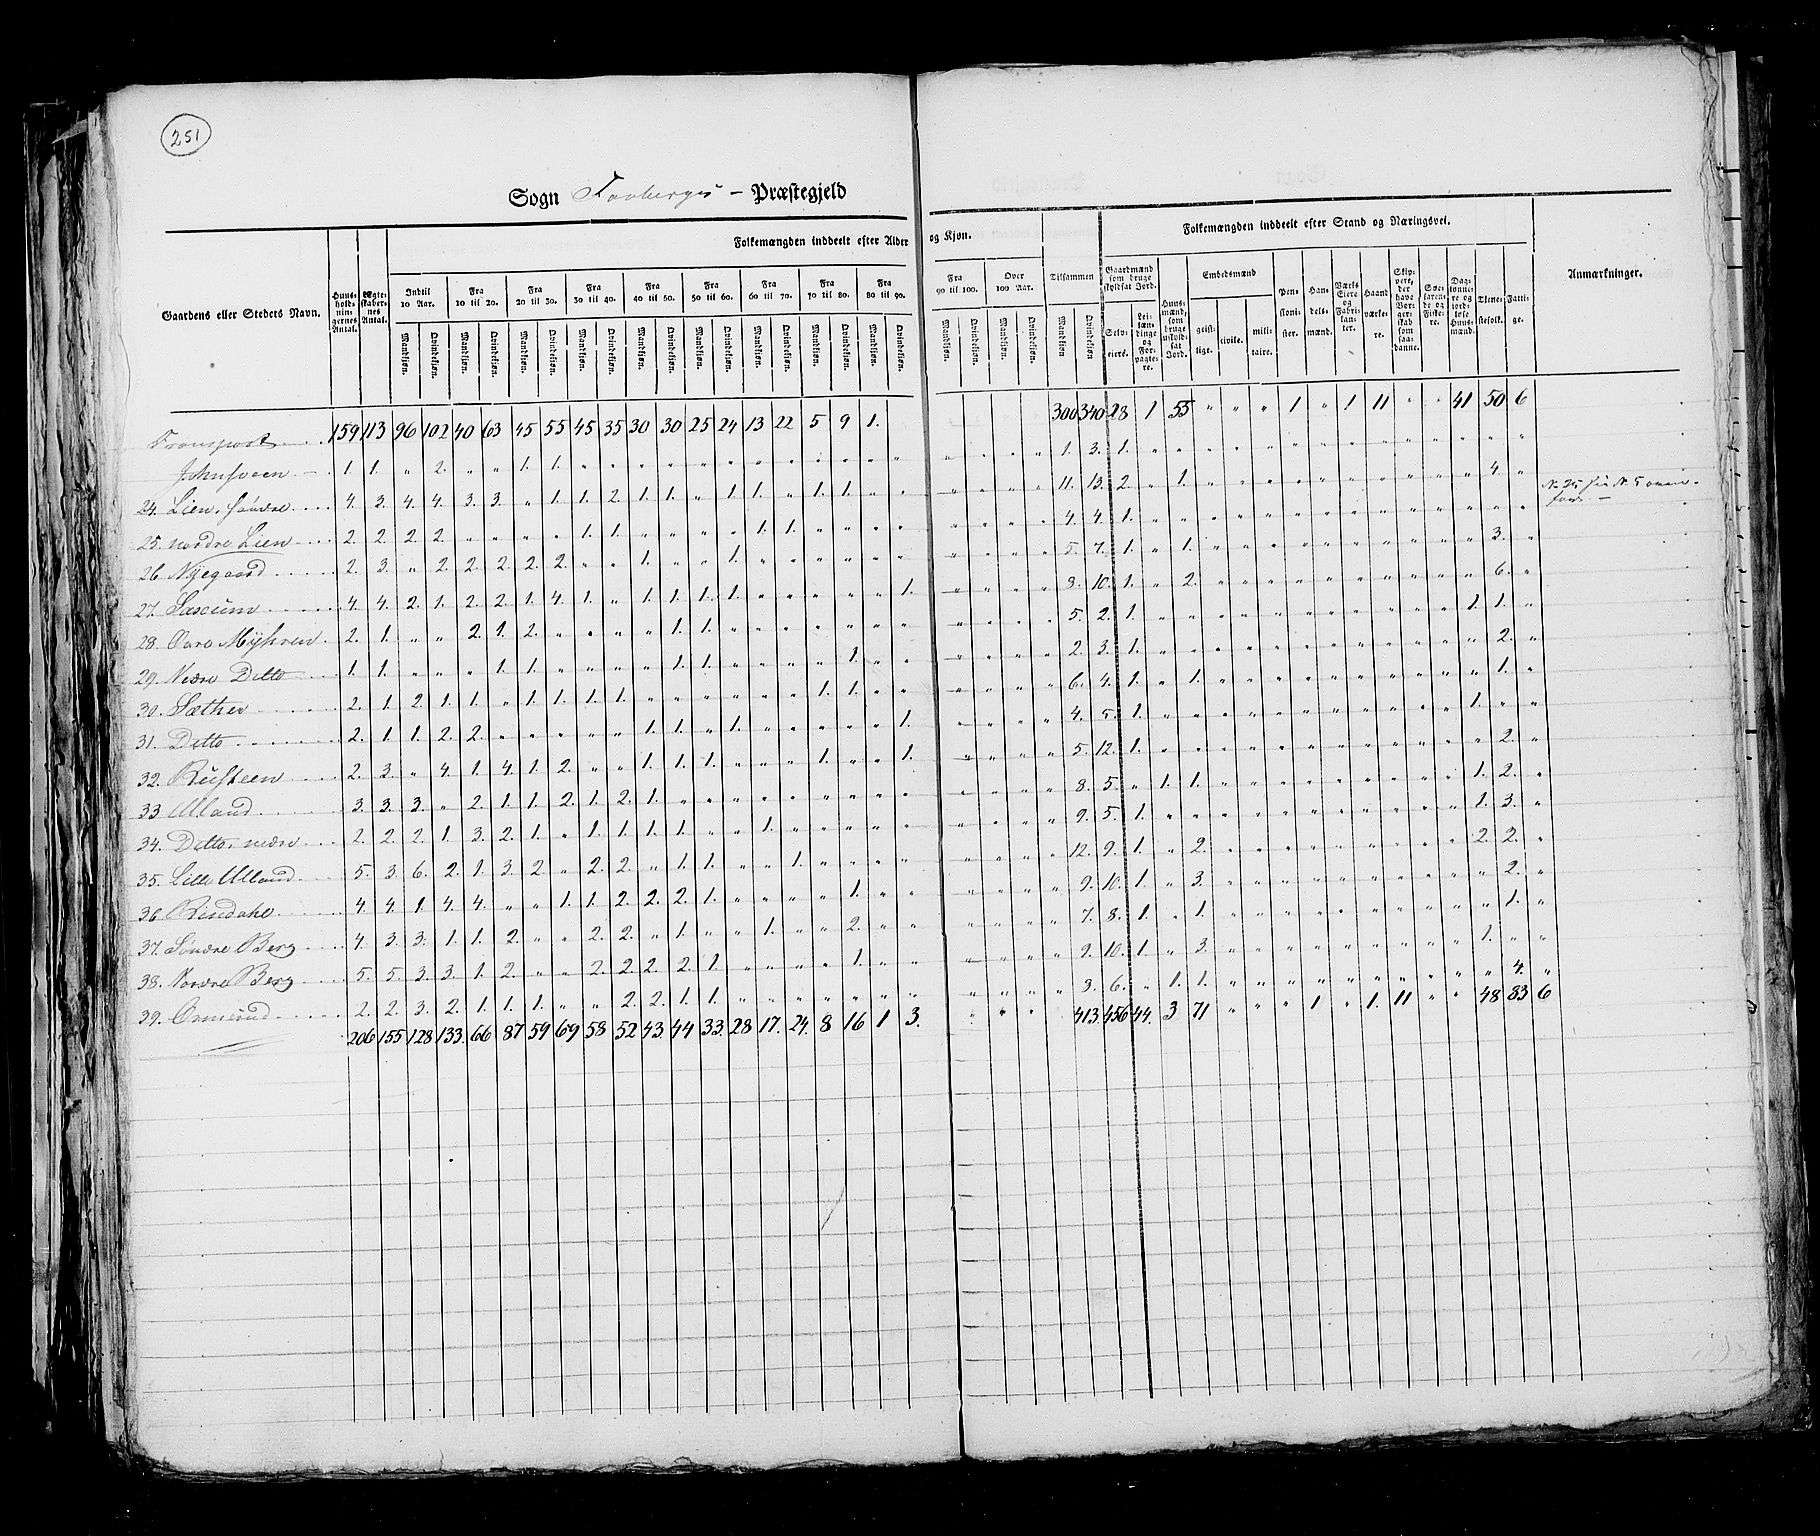 251
Sogn Faabergs - Præstegjeld
Folkemængden inddeelt efter Alder og Kjøn.
Folkemængden inddeelt efter Stand og Næringsvei.
Gaardens eller Stedets Navn.
Huusholdningernes Antal.
Ægteskabernes Antal.
Indtil 10 Aar.
Fra 10 til 20.
Fra 20 til 30.
Fra 30 til 40.
Fra 40 til 50.
Fra 50 til 60.
Fra 60 til 70.
Fra 70 til 80.
Fra 80 til 90.
Fra 90 til 100.
Over 100 Aar.
Tilsammen
Mandkjøn. Qvindekjøn.
Gaardmænd som bruge skyldsat Jord.
Selveiere.
Leilændinge og Forpagtere.
Huusmænd, som bruge uskyldsat Jord.
Embedsmænd
geistlige. civile. militaire.
Pensionister.
Handelsmænd.
Værks Eiere og Fabrikanter.
Haandværkere.
Skippere, der have Borgerskab som saadanne.
Søefarende og Fiskere.
Daglønnere og jordløse Huusmænd.
Tienestefolk.
Fattige.
Anmærkninger.
Transport 159 113 96 102 40 63 45 55 45 35 30 30 25 24 13 22 5 9 1. 300 340 28 1 55 " " " 1 " 1 11 " " 41 50 6
Johnsveen 1. 1. " 2. " " 1. 1. 1. 3. 1.
24. Lien, søndre 4. 3. 4. 4. 3. 3. " 1. 1. 2. 1. 1. " 1. 1. " 1. 1. 11. 13. 2. " 1. 4.
25. nordre Lien 2. 2. 2. 2. " " " " 1. 1. " " " " 1. 1. 4. 4. 1.
26. Nyegaard 2. 3. " 2. 2. 2. 2. 2. " " 1. " " 1. 5. 7. 1. " 1. 3.
27. 4. 4. 2. 1. 2. 2. 1. 4. 1. " 1. 1. 1. 1. 1. 8. 10. 1. " 2. 6.
28. Øvre Myhren 2. 1. " " 2. 1. 2. " " " " 1. 1. 5. 2. 1. 1. 1.
29. Nedre Ditto 1. 1. " " " 1. 1. " " " " 1. 1. 1. 2. 3. 1. 2.
30. Sæther 2. 1. 2. 1. 1. " 1. 1. 1. 1. 1. 1. 6. 4. 1. " 1. 1.
31. Ditto 2. 1. 1. 2. 2. 1. 1. " 1. 1. 4. 5. 1. 1.
32. Rusteen 2. 3. " 4. 1. 4. 1. 2. " " 1. 1. 1. 1. 1. 5. 12. 1. 2.
33. Ulland 3. 3. 3. " 2. 1. 1. 2. 1. 2. 1. 8. 5. " 1. 1. 1. 2.
34. Ditto, nedre 2. 2. 2. 1 3. 2. 1. " 1. 1. 1. 1. " " 1. 9. 5. 1. 1. 3.
35. Lille Ulland 5. 3. 6. 2. 1. 3. 2 " 2. 2. " 1. 1. " " 1. 12. 9. 1. " 2. 2. 2.
36. Rindahl 4. 4. 1. 4. 4. " " 1. 1. 2. 2. 2. 1. 1. 9. 10. 1. " 3. 2.
37. Søndre Berg 4. 3. 3. 1. 1. 2. " " 2. 2. " 1. " " 1. " " 2. 7. 8. 1. " 1. 1.
38. Nordre Berg 5. 5. 3. 3. 1. 2. " " 2. 2. 2. 2. 1. 1. 9. 10. 1 " 3. 1.
39. Ormerud 2. 2. 3. 2. 1. 1. 1. " " 2. 2. 1. 1. 8. 6. " 1. 1. 4.
206 155 128 133. 66 87 59 69 58 52 43. 44 33. 28 17. 24. 8 16 1 3. 413. 456 44. 3 71 " " " 1 " 1. 11 " " 48 83 6